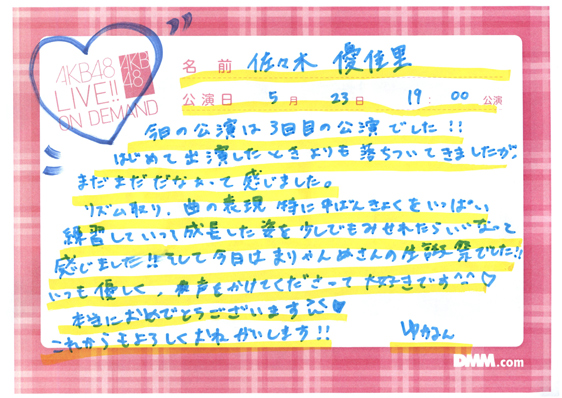 AKB48
LIVE!!
ON DEMAND
AKB
48
名前 佐々木 優佳里
公演日 5月 23日 19:00 公演
今日の公演は3回目の公演でした!!
はじめて出演したときよりも落ちついてきましたが、
まだまだだなぁって感じました。
リズム取り、曲の表現 特に中ばんきょくをいっぱい
練習していって成長した姿を少しでもみせれたらいいなと
感じました!!そして今日はまりやんぬさんの生誕祭でした!!
いつも優しく、声をかけてくださって大好きです^^♡
本当におめでとうございます♥
これからもよろしくおねがいします!!
ゆかるん
DMM.com